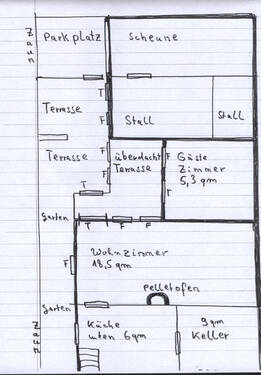 Zaun
Parkplatz
Scheune
T
F
Terrasse
Stall
Stall
Terrasse
F
überdacht
Terrasse
F
Gäste
Zimmer
5,3 qm
T
T
Garten
T
F
F
Wohnzimmer
18,5 qm
F
Pelletofen
Garten
Zaun
Küche
unten 6qm
9qm
Keller